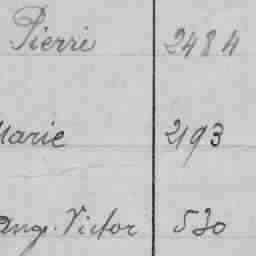 Pierre 2484
Marie 2193
ang. Victor 530